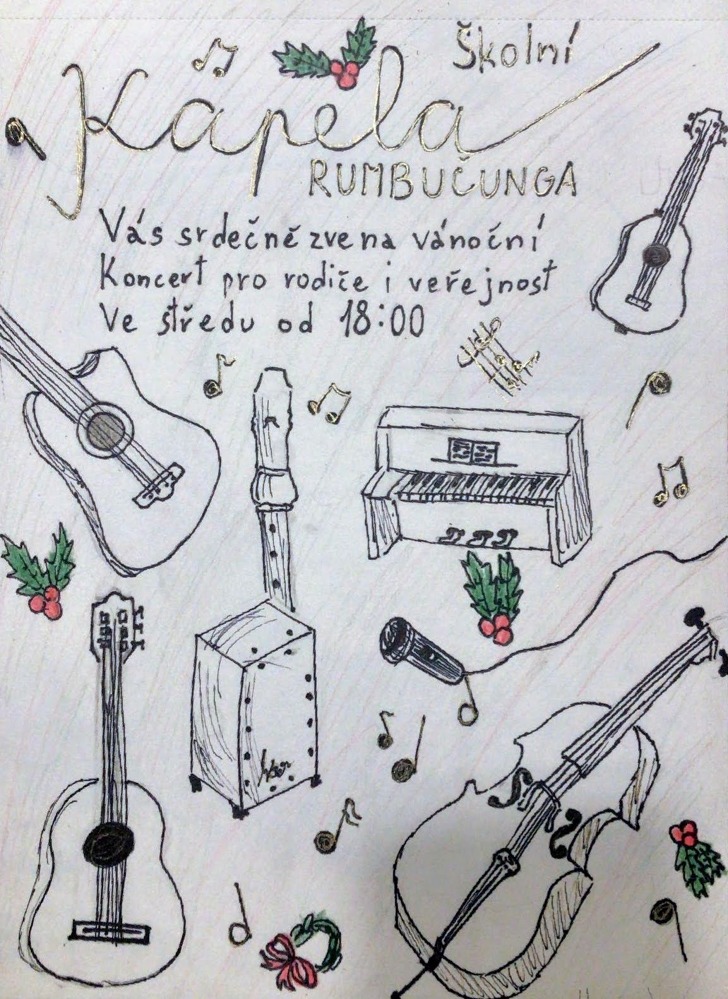 Školní
Kapela
RUMBUČUNGA
Vás srdečně zve na vánoční
Koncert pro rodiče i veřejnost
Ve středu od 18:00